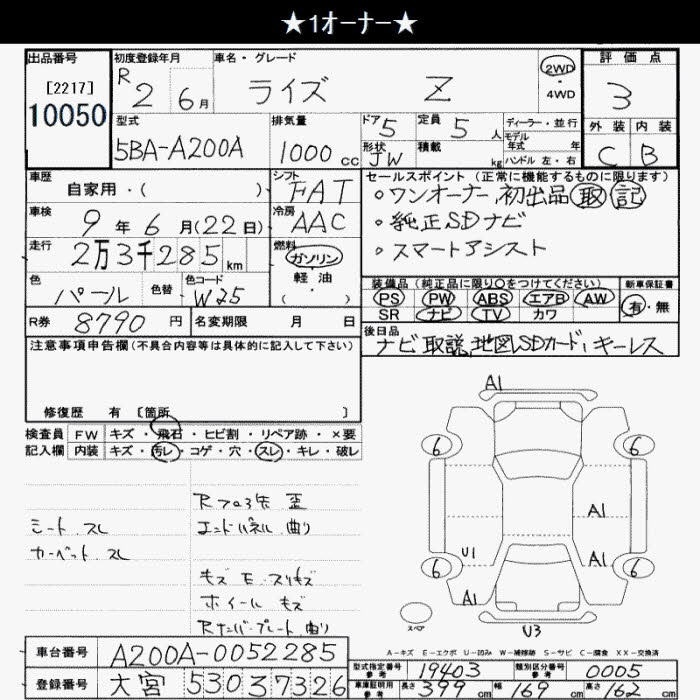 ★1オーナー★
出品番号 初度登録年月 車名・グレード 評価点
[2217]
10050
R 2 6月 ライズ Z 2WD ・ 4WD 3
型式 排気量 ドア 5 定員 5 人 ディーラー・並行 外装 内装
5BA-A200A 1000 cc 形状 JW 積載 kg モデル年式 年 ハンドル 左・右 C B
車歴 自家用・( ) シフト FAT
セールスポイント(正常に機能するものに限ります)
。ワンオーナー 初出品 取 記
車検 9年 6月(22日) 冷房 AAC
。純正SDナビ
走行 2万3千285km 燃料 ガソリン ・ 軽油 ・ ( )
。スマートアシスト
色 パール 色替 色コード W25
装備品(純正品に限り〇をつけてください) 新車保証書
PS PW ABS エアB AW 有・無
SR ナビ TV カワ
R券 8790 円 名変期限 月 日
後日品
ナビ取説,地図SDカード,キーレス
注意事項申告欄(不具合内容等は具体的に記入して下さい)
修復歴 有 〔箇所 〕
検査員 FW キズ・飛石・ヒビ割・リペア跡・×要
記入欄 内装 キズ・汚レ・コゲ・穴・スレ・キレ・破レ
Rフロア 歪
シート スレ エンドパネル 曲り
カーペット スレ
キズ E スリキズ
ホイール キズ
Rナンバープレート 曲り
A1
6 6
A1
U1 A1
6 6
A1
スペア
U3
A-キズ E-エクボ U-凹み W-補修跡 S-サビ C-腐食 XX-交換済
車台番号 A200A-0052285
型式指定番号 参考 19403 類別区分番号 参考 0005
登録番号 大宮 530 37326
車庫証明用 参考 長さ 399 cm 幅 169 cm 高さ 162 cm